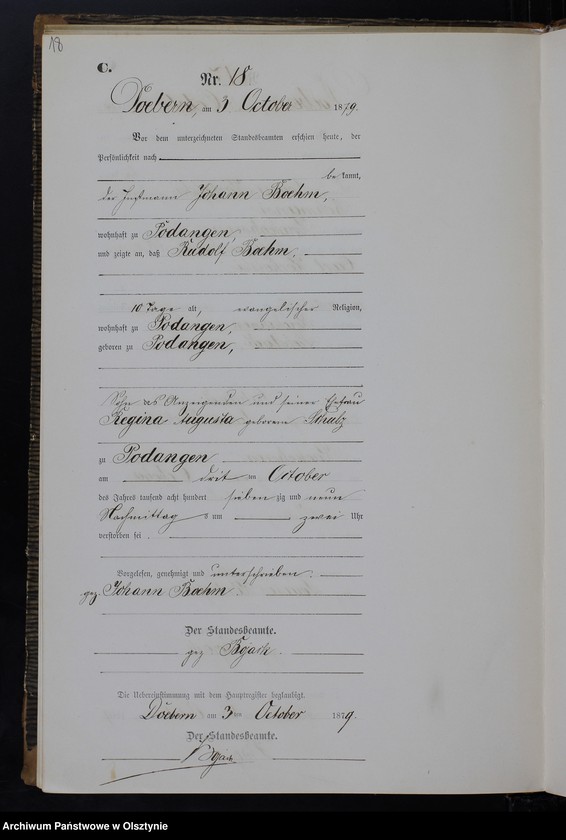 18
C.
Nr. 18
Doebern, am 3 October 1879.
Vor dem unterzeichneten Standesbeamten erschien heute, der
Persönlichkeit nach
bekannt,
der Instmann Johann Boehm,
wohnhaft zu Podangen,
und zeigte an, daß Rudolf Boehm,
10 Tage alt, evangelischer Religion,
wohnhaft zu Podangen,
geboren zu Podangen,
Sohn des Anzeigenden und seiner Ehefrau
Regina Augusta geborene Schulz
zu Podangen
am drit ten October
des Jahres tausend acht hundert siebenzig und neun
Nachmittags um zwei Uhr
verstorben sei.
Vorgelesen, genehmigt und unterschrieben.
gez. Johann Boehm
Der Standesbeamte.
gez
Die Uebereinstimmung mit dem Hauptregister beglaubigt.
Döebern am 3ten October 1879.
Der Standesbeamte.
Archiwum Państwowe w Olsztynie